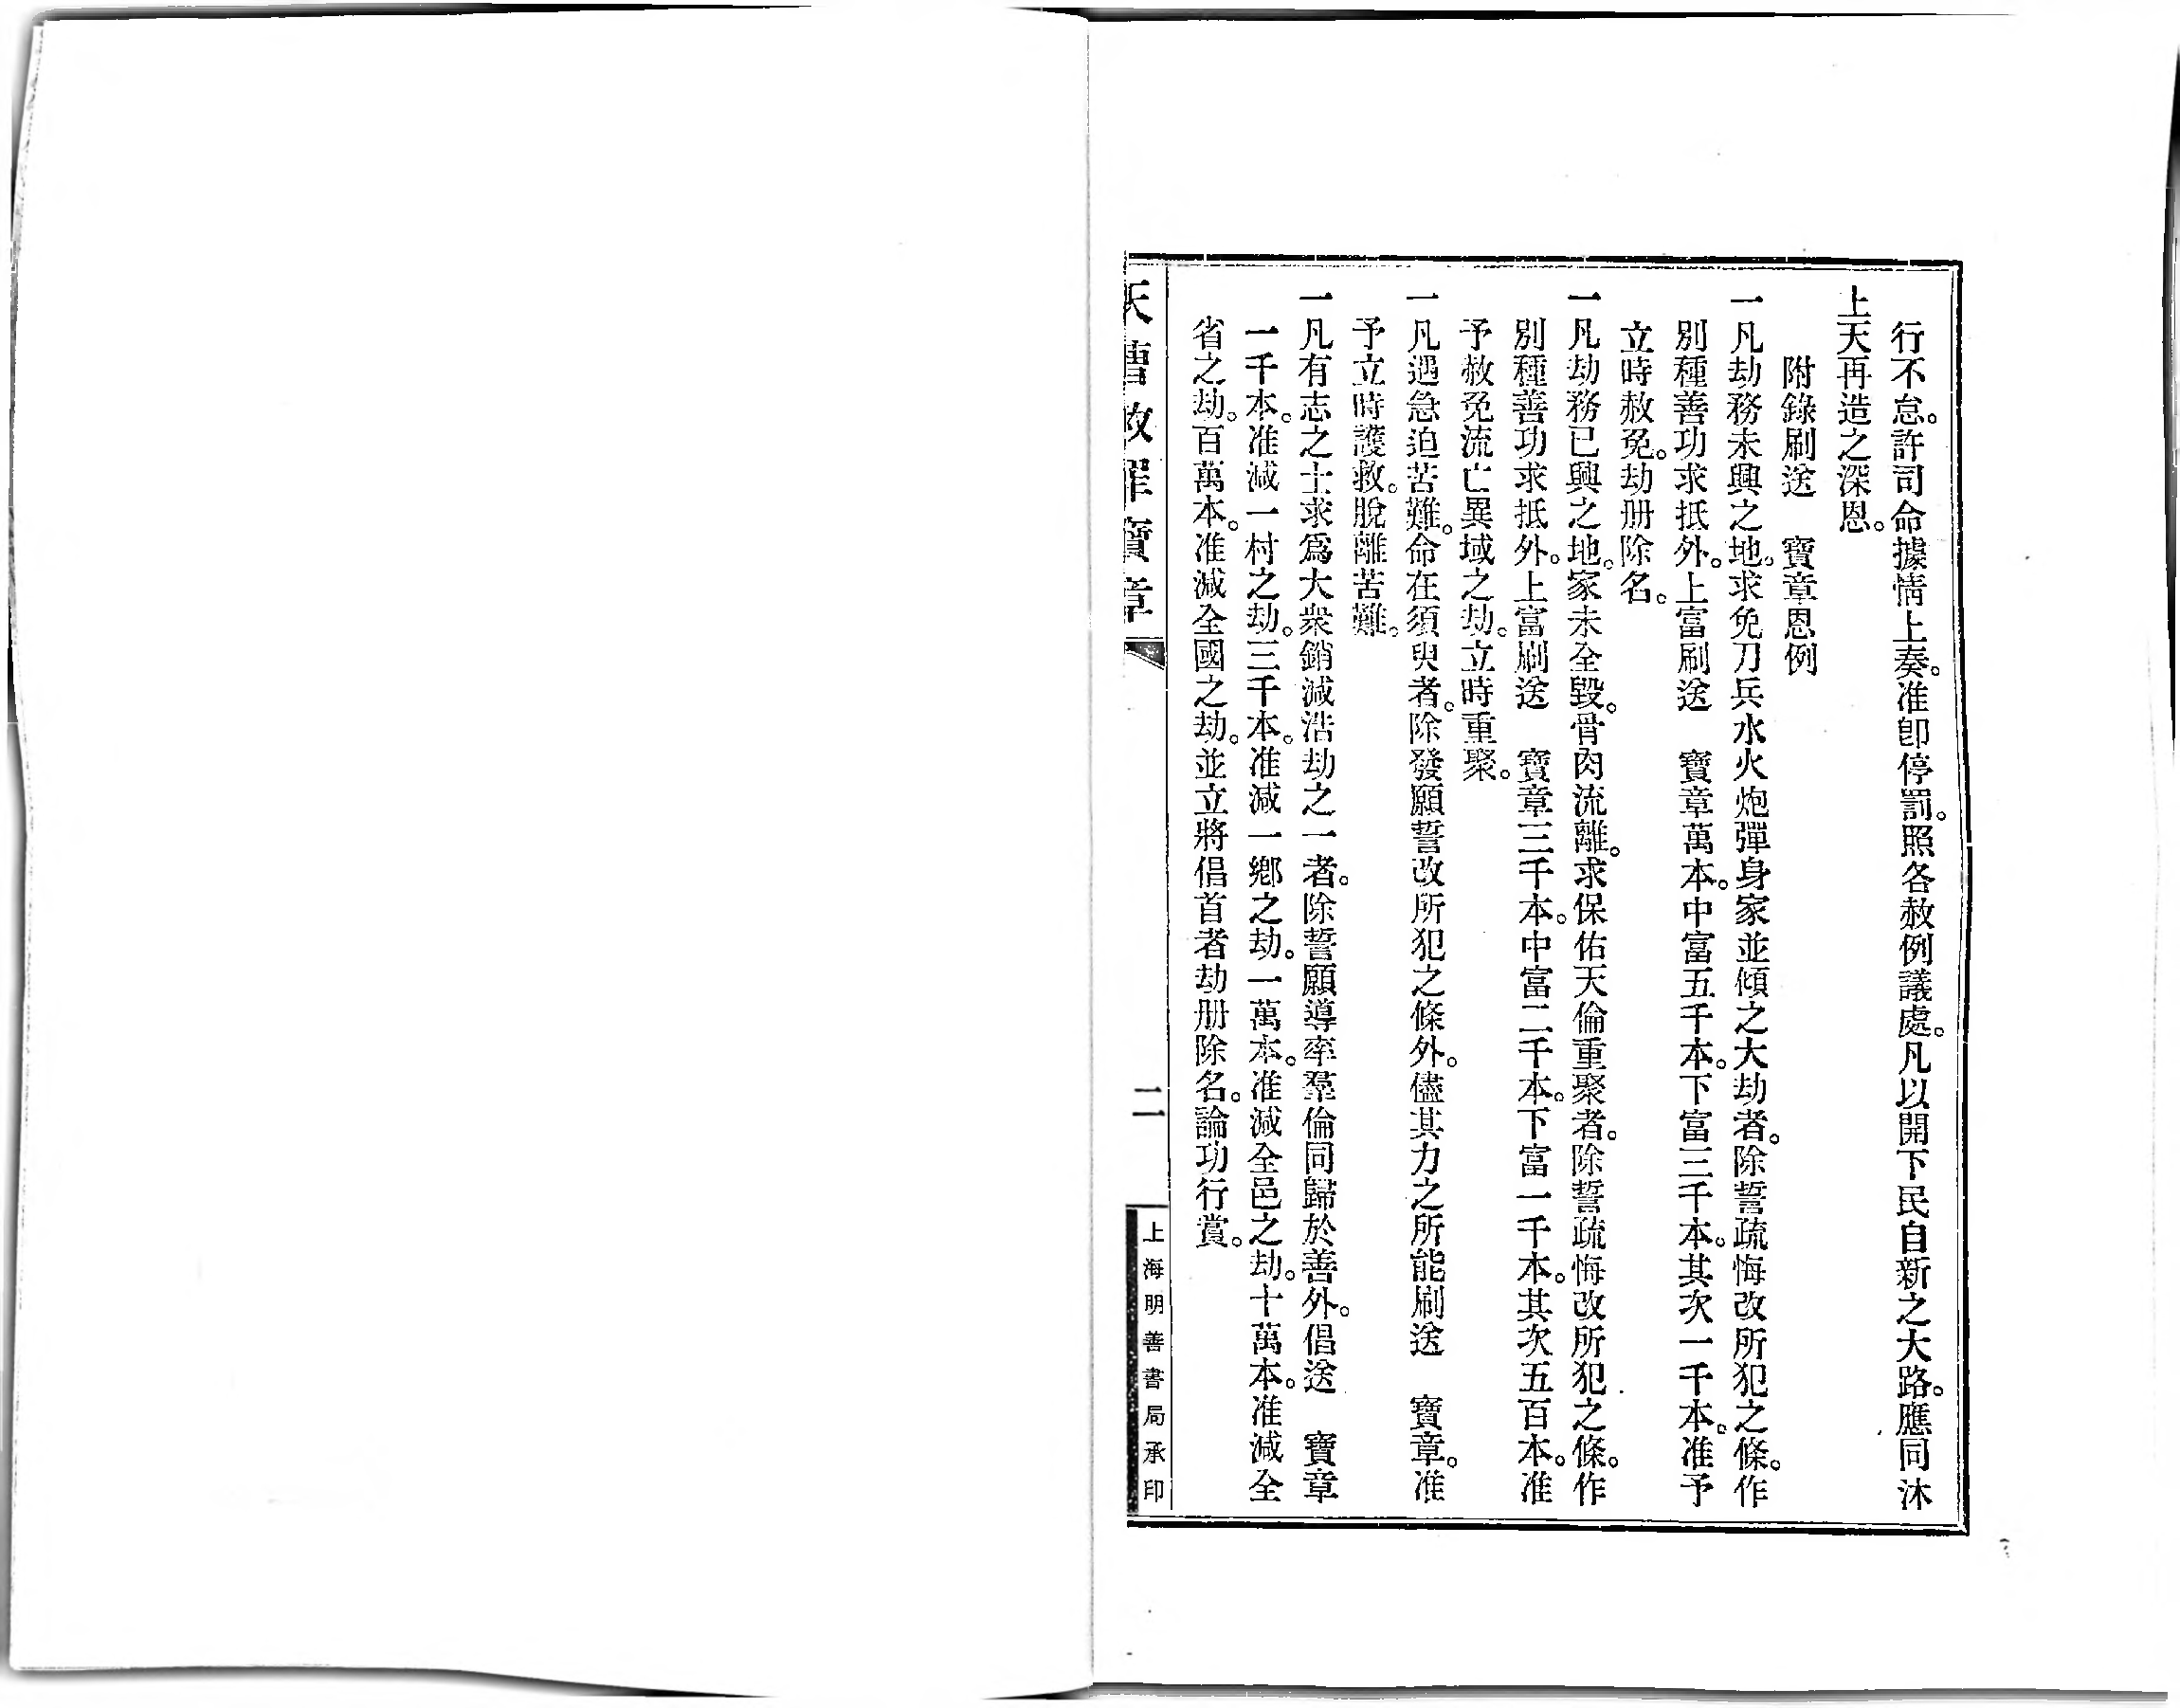 行不怠。許司命據情上奏。准卽停罰。照各赦例議處。凡以開下民自新之大路。應同沐
上天再造之深恩。
附錄刷送　寶章恩例
一凡劫務未興之地。求免刀兵水火炮彈身家並傾之大劫者。除誓疏悔改所犯之條。作
別種善功求抵外。上富刷送　寶章萬本。中富五千本。下富三千本。其次一千本。准予
立時赦免。劫册除名。
一凡劫務已興之地。家未全毀。骨肉流離。求保佑天倫重聚者。除誓疏悔改所犯之條。作
別種善功求抵外。上富刷送　寶章三千本。中富二千本。下富一千本。其次五百本。准
予赦免流亡異域之劫。立時重聚。
一凡遇急迫苦難。命在須臾者。除發願誓改所犯之條外。儘其力之所能刷送　寶章。准
予立時護救。脫離苦難。
一凡有志之士求爲大衆銷減浩劫之一者。除誓願導率羣倫同歸於善外。倡送　寶章
一千本。准減一村之劫。三千本。准減一鄉之劫。一萬本。准減全邑之劫。十萬本。准減全
省之劫。百萬本。准減全國之劫。並立將倡首者劫册除名。論功行賞。
天曹赦罪寶章
二
上海明善書局承印